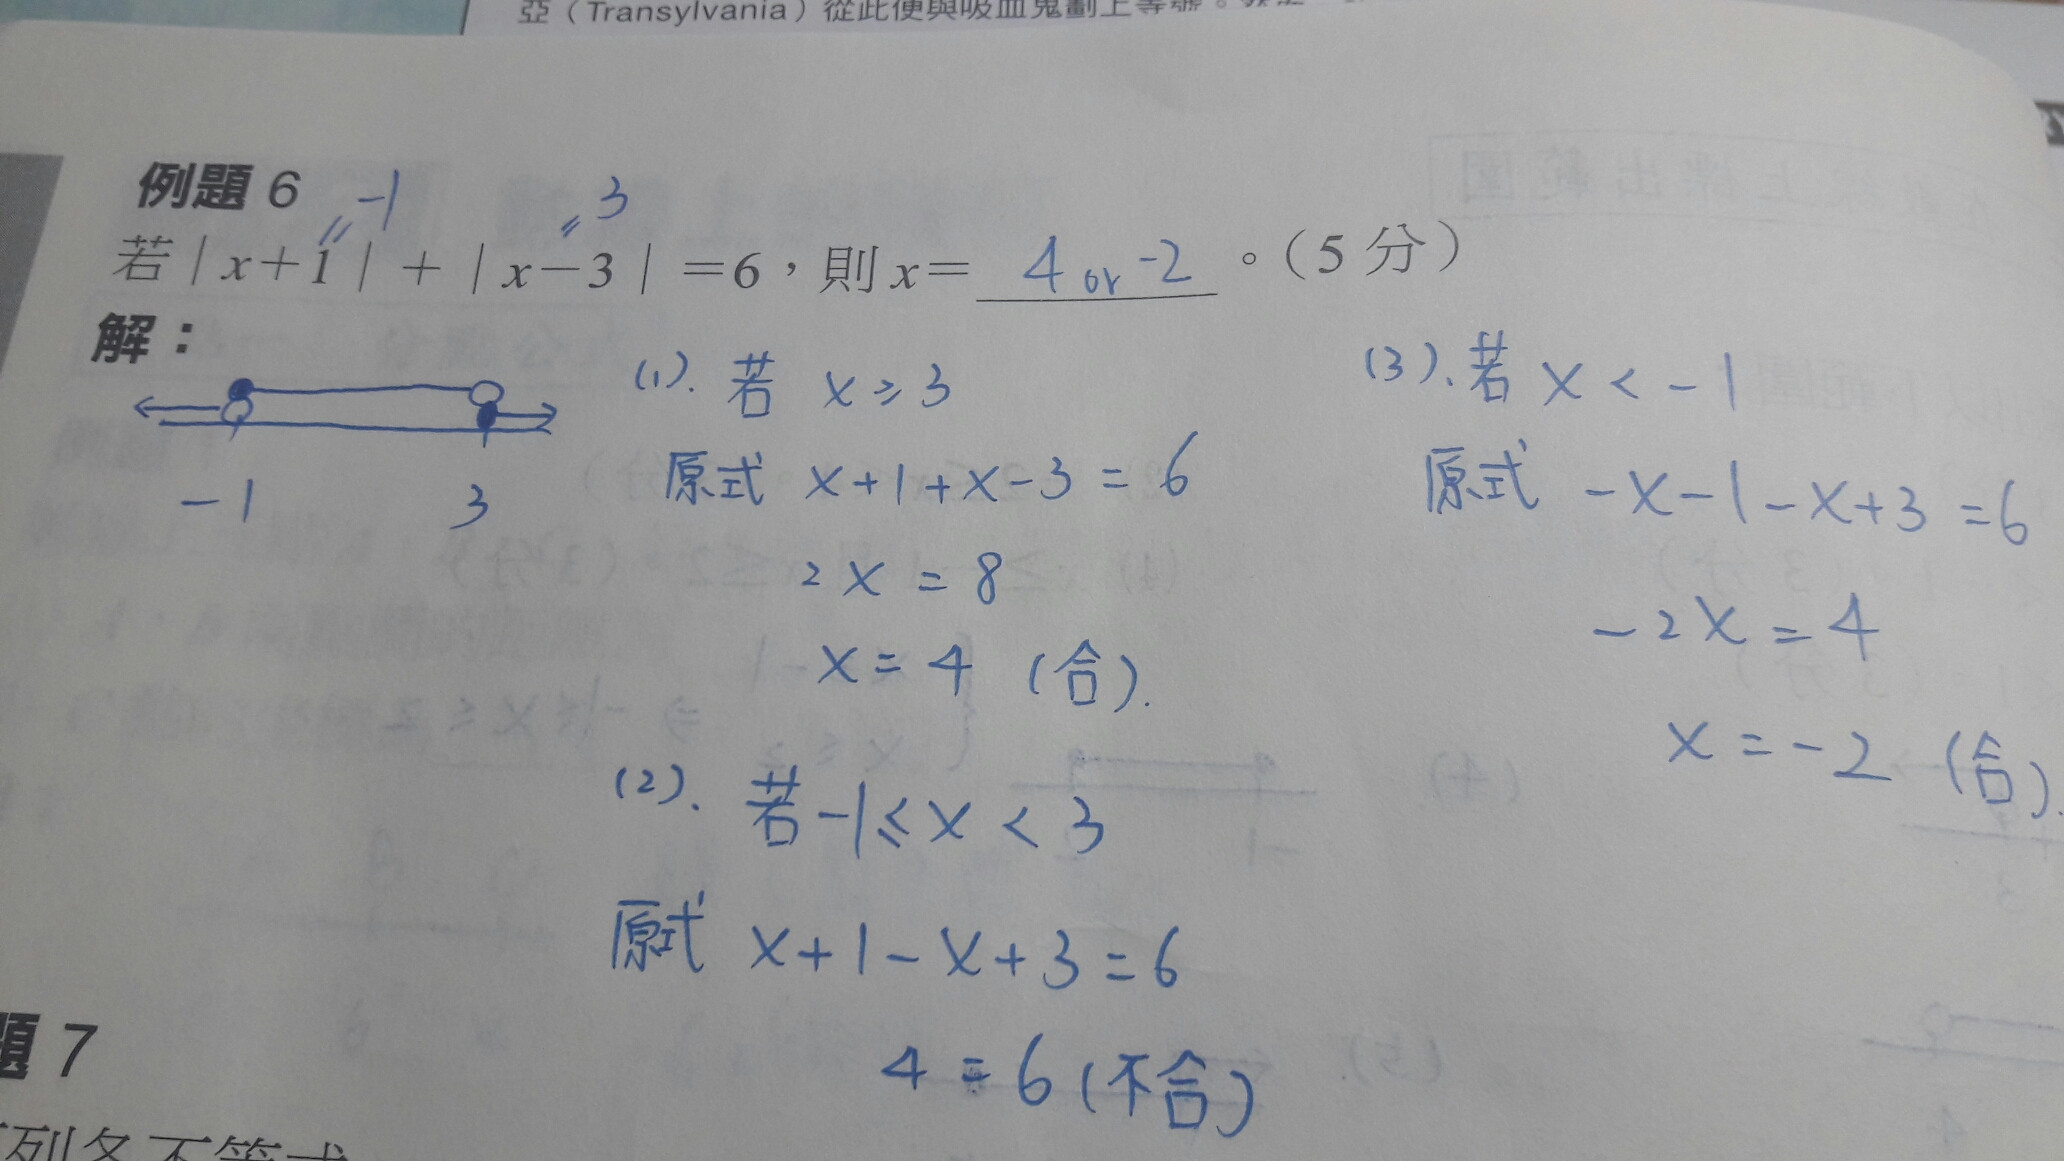 亞（Transylvania）從此便與吸血鬼劃上等號。
例題 6
-1
3
若｜x+1｜+｜x-3｜=6，則 x= 4 or -2 。(5 分)
解：
-1 3
(1). 若 x ≥ 3
原式 x+1+x-3=6
2x = 8
x = 4 (合).
(2). 若 -1 ≤ x < 3
原式 x+1-x+3=6
4 = 6 (不合)
(3). 若 x < -1
原式 -x-1-x+3=6
-2x = 4
x = -2 (合).
題 7
列各不等式